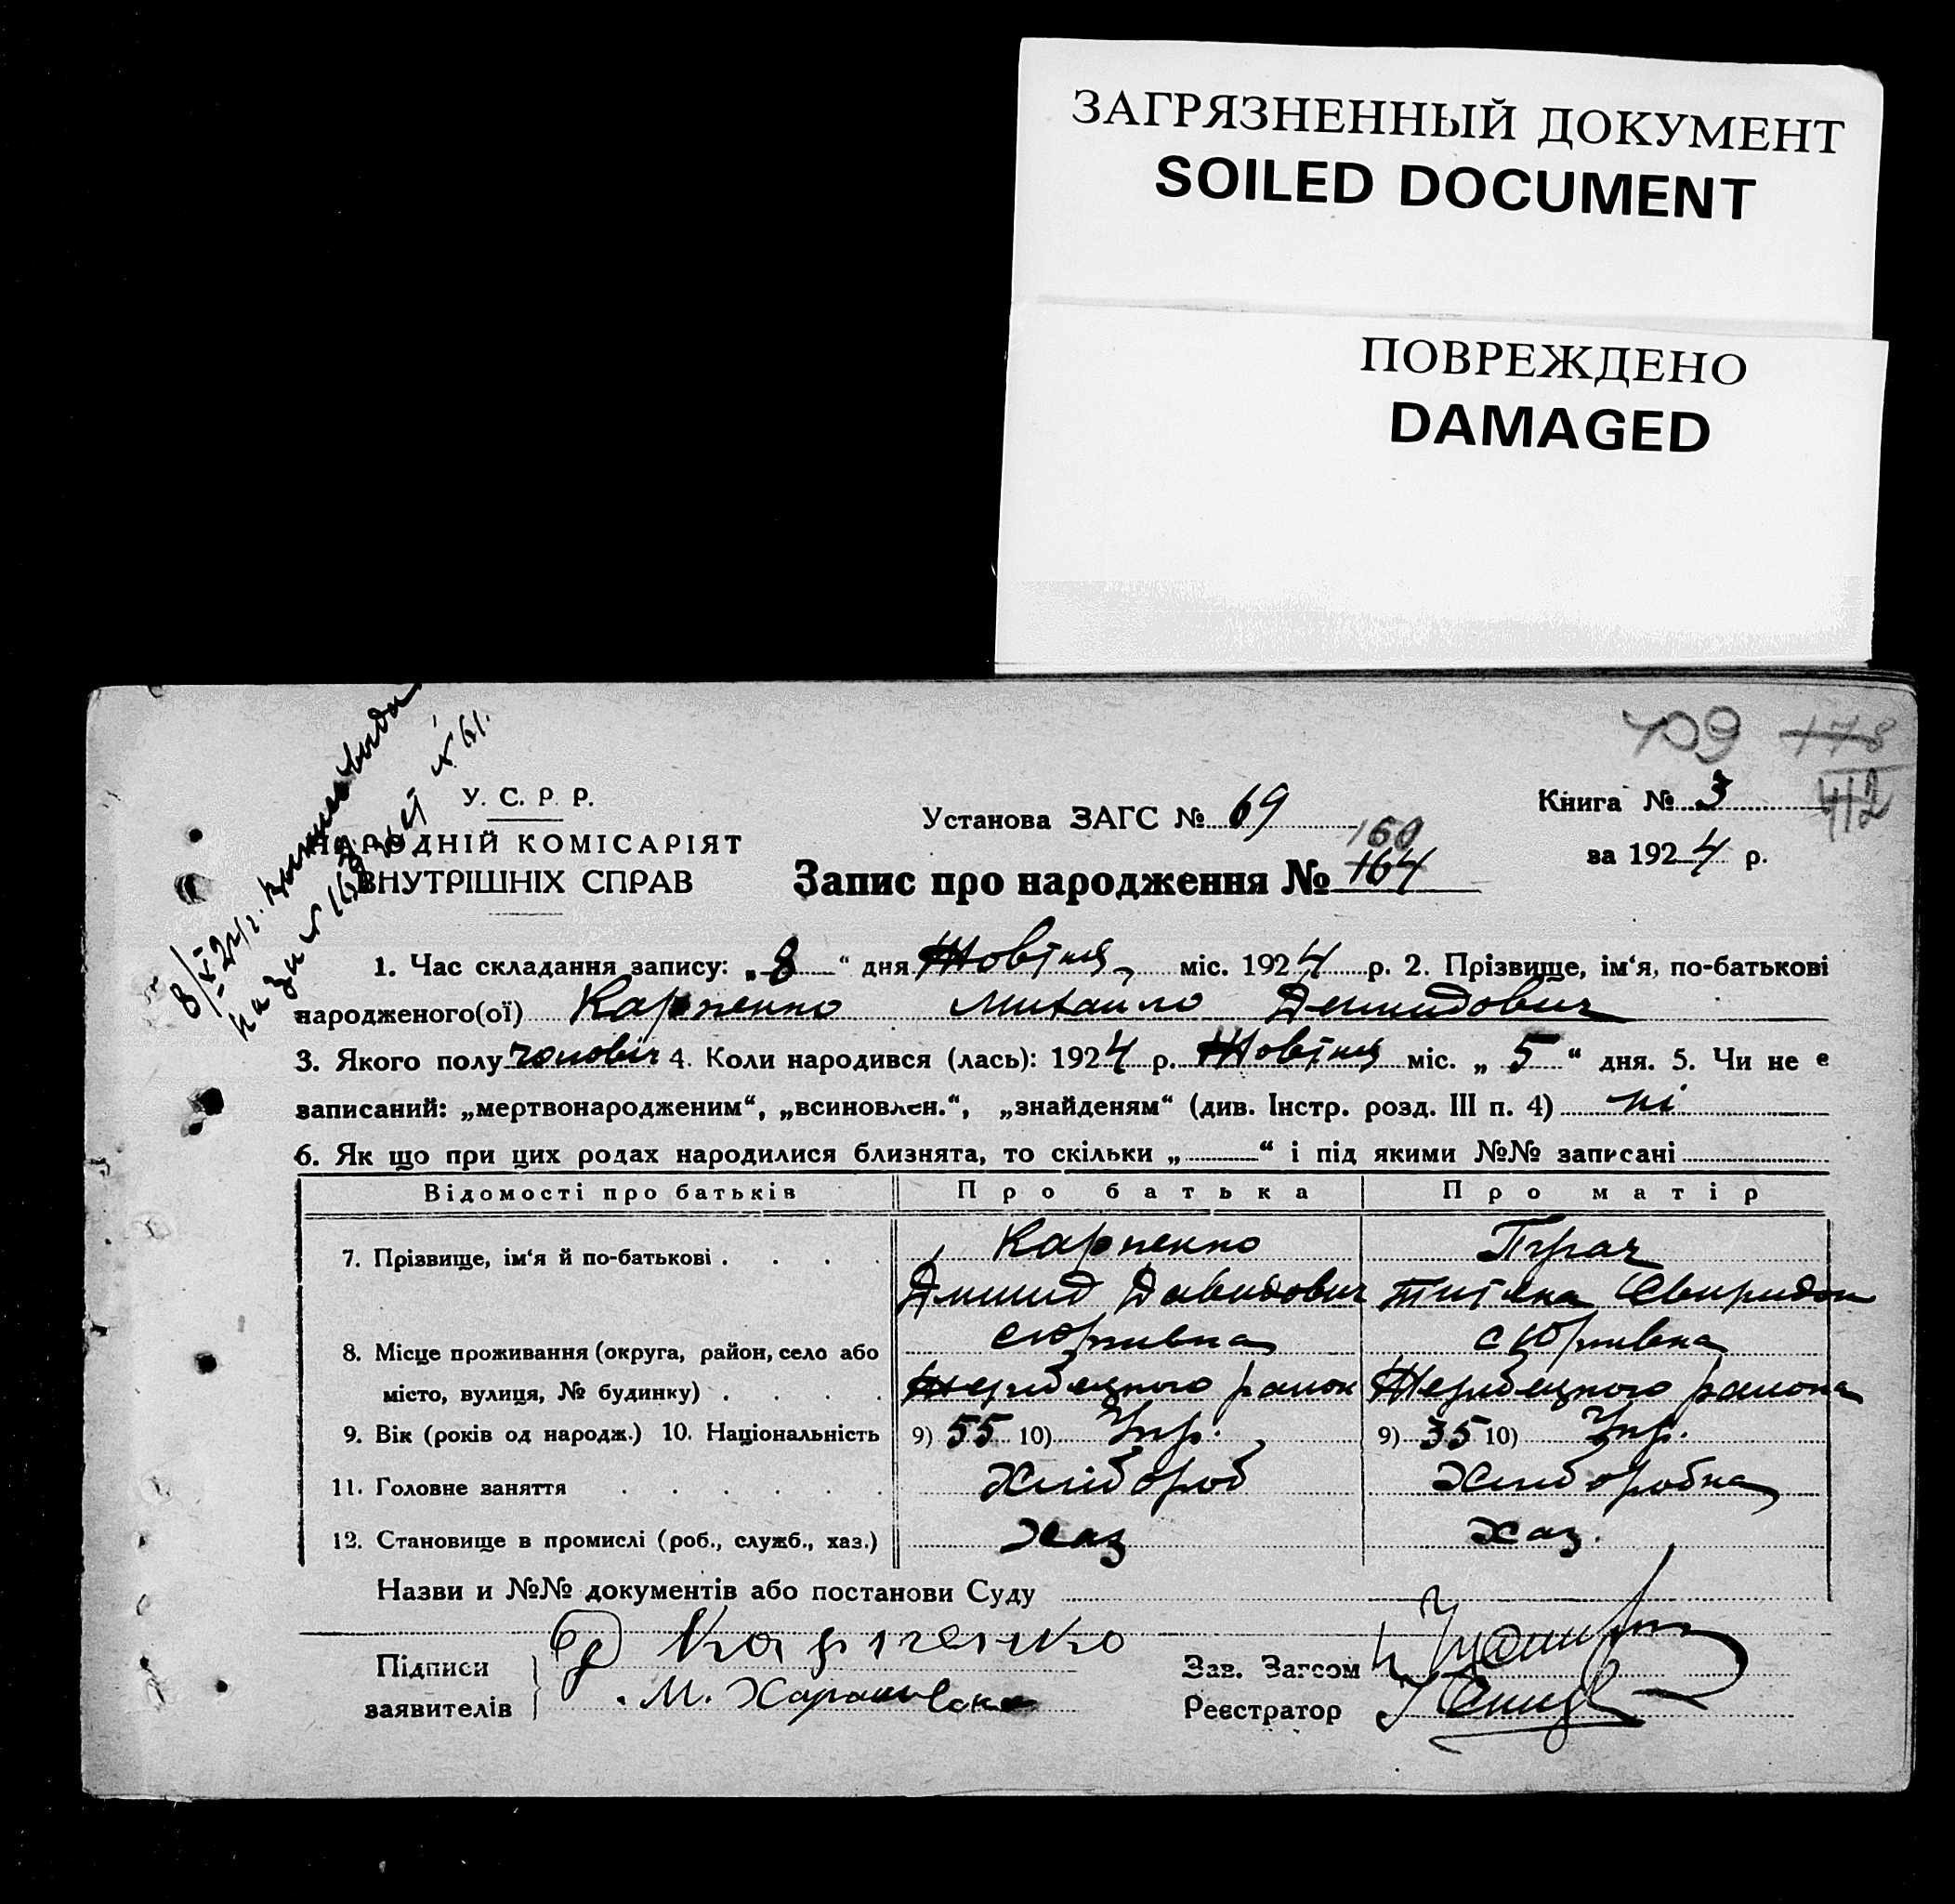 ЗАГРЯЗНЕННЫЙ ДОКУМЕНТ
SOILED DOCUMENT
ПОВРЕЖДЕНО
DAMAGED
409 178
412
У. С. Р. Р.
НАРОДНІЙ КОМІСАРІЯТ
ВНУТРІШНІХ СПРАВ
Установа ЗАГС № 69
Книга № 3
за 1924 р.
160
Запис про народження № 164
1. Час складання запису: „8“ дня Жовтня міс. 1924 р. 2. Прізвище, ім‘я, по-батькові
народженого(ої) Карпенко Михайло Демидович
3. Якого полу чоловіч 4. Коли народився (лась): 1924 р. Жовтня міс. „5“ дня. 5. Чи не є
записаний: „мертвонародженим“, „всиновлен.“, „знайденям“ (див. Інстр. розд. III п. 4) ні
6. Як що при цих родах народилися близнята, то скільки „ “ і під якими №№ записані
Відомості про батьків Про батька Про матір
7. Прізвище, ім‘я й по-батькові Карпенко
Демид Давидович Свиридон
8. Місце проживання (округа, район, село або с Юрківка с Юрківка
місто, вулиця, № будинку) Жеребецького район Жеребецького района
9. Вік (років од народж.) 10. Національність 9) 55 10) Укр. 9) 35 10) Укр.
11. Головне заняття Хлібороб Хліборобка
12. Становище в промислі (роб., служб., хаз.) Хаз Хаз.
Назви и №№ документів або постанови Суду
Підписи Карпенко Зав. Загсом
заявителів М. Реєстратор